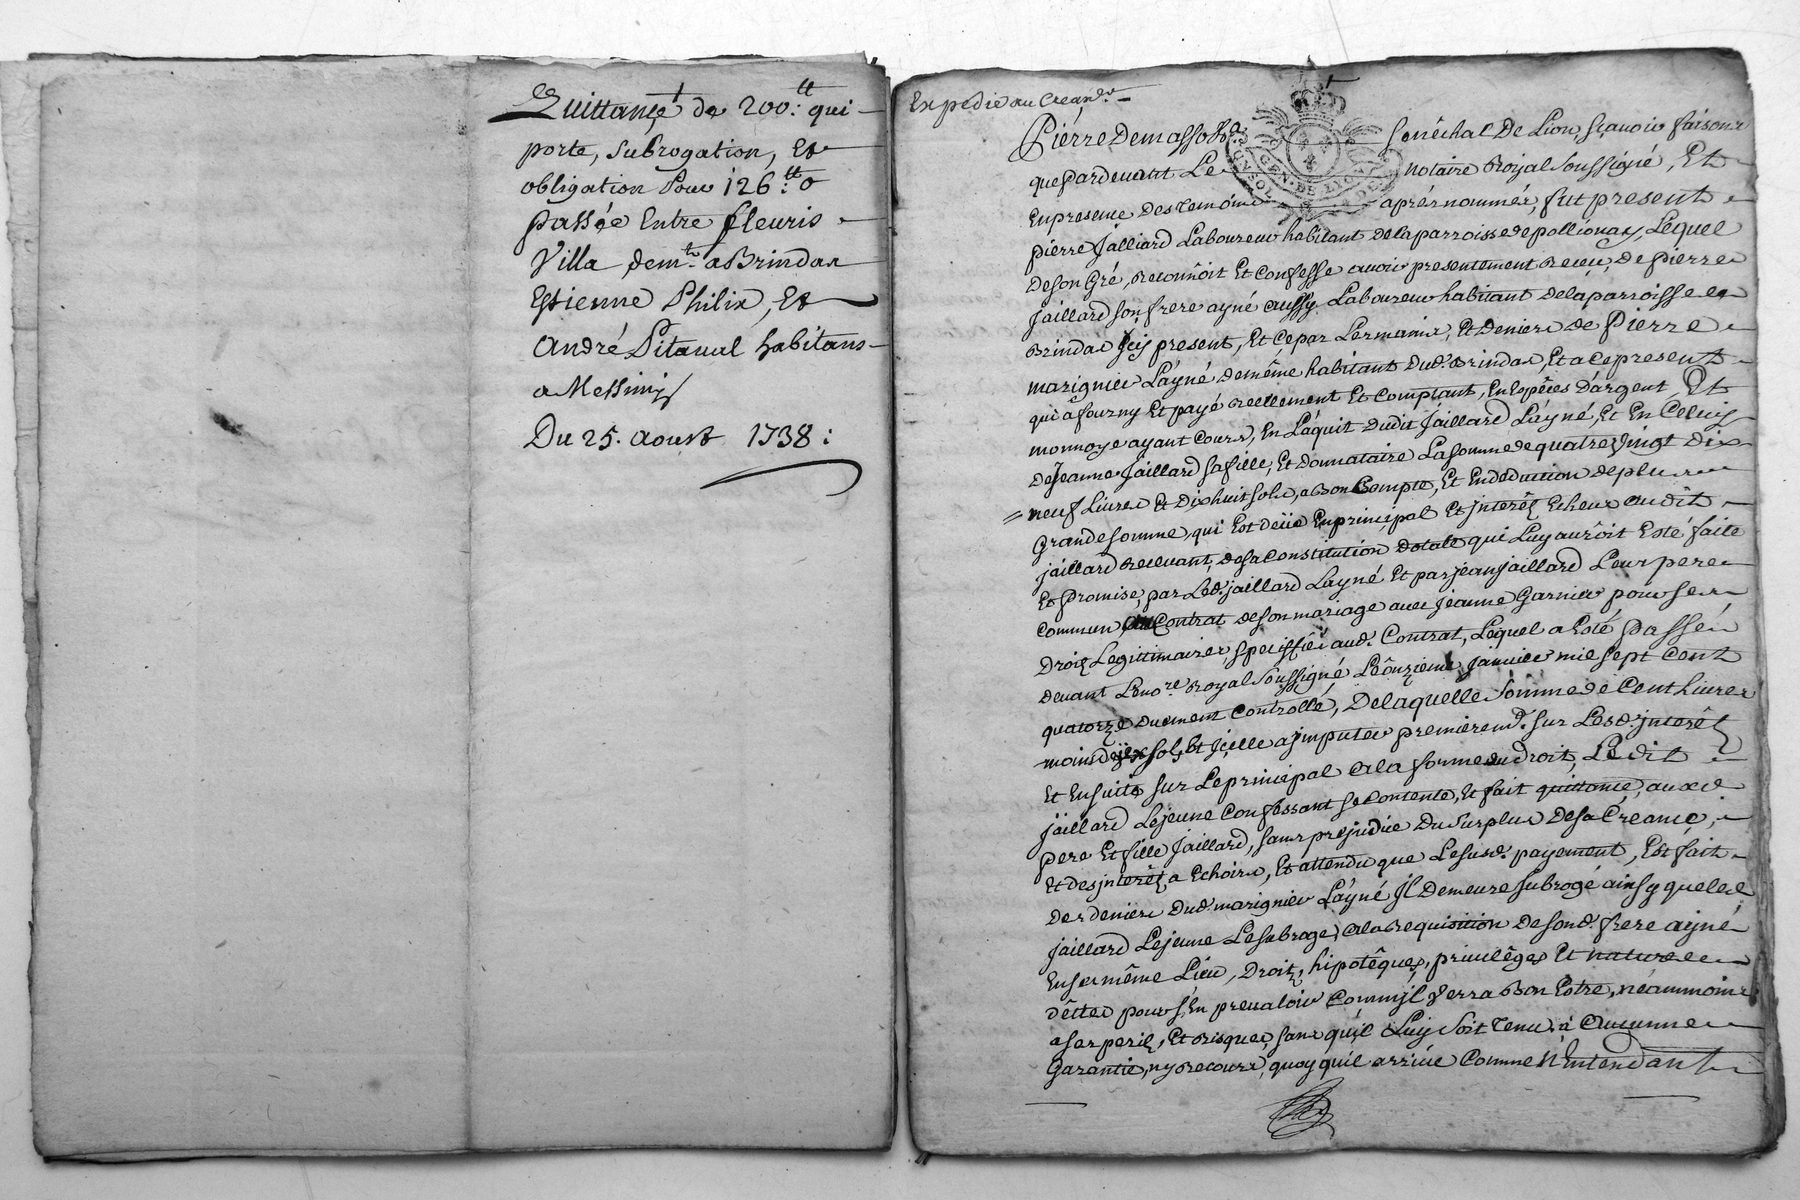 Quittançe de 200.tt qui
porte, subrogation, Et
obligation Pour 126.tt 0
Passée Entre fleuris
Villa dem.t a Brindas
Estienne Philix, Et
André Pitaval habitans
a Messimy
Du 25. aoust 1738:
Expedié au Crean.r
Pierre Demasso Sénéchal De Lion, sçavoir faisons
que Pardevant Le notaire Royal soussigné, Et
En presence Des temoins aprés nommés, fut present
pierre Jalliard Laboureur habitant de la parroisse de pollionay, Lequel
De son Gré, reconnoît Et confesse avoir presentement Receu, de pierre
Jaillard son frere ayné aussy Laboureur habitant de la parroisse de
Brindas Jcy present, Et ce par Les mains, Et deniers de Pierre
marignier Layné de même habitant Dud. Brindas, Et a ce present
qui a fourny Et payé reellement Et Comptant, En Espéces D'argent Et
monnoye ayant Cours, En L'aquit dudit Jaillard Layné, Et En Celuy
de Jeanne Jaillard sa fille, Et Donnataire La somme de quatre vingt Dix
neuf Livres Et Dix huit sols, a Bon Compte, Et En deduction de plus
Grande somme, qui Est deüe En principal Et jnterêt Echeus audit
jaillard recevant, de sa Constitution dotale qui Luy auroit Esté faite
Et Promise, par Led. jaillard Layné Et par jean jaillard Leur pere
commun au Contrat de son mariage avec jeanne Garnier pour ses
Droits Legittimaires specifiés aud. Contrat, Lequel a Esté Passé
devant Le no.re Royal soussigné Le onzieme janvier mil sept Cent
quatorze duement Controllé, De laquelle somme de Cent Livres
moins deux sols, Et jcelle a jmputer premierem.t sur Lesd. jnterêts
Et Ensuite sur Le principal a la forme du droit, Le dit
jaillard Lejeune Confessant se Contente, Et fait quittance, auxd.
pere Et fille Jaillard, sans prejudice Du surplus De sa Créance,
Et des jnterêts a Echoirs, Et attendu que Le susd. payement, Est fait
Des deniers Dud. marignier Layné Jl Demeure subrogé ainsy que led.
jaillard Lejeune Le subroge, a la requisition de son d. frere ayné
En ses même Lieu, Droits, hipotêques, privilêges Et nature de
dêttes pour s'En prevaloir Comm'jl verra Bon Estre, néammoins
a ses perils, Et risques, sans qu'il Luy soit tenu, a Aucunne
Garantie, ny recours, quoy qu'il arrive Comme N'Entendant